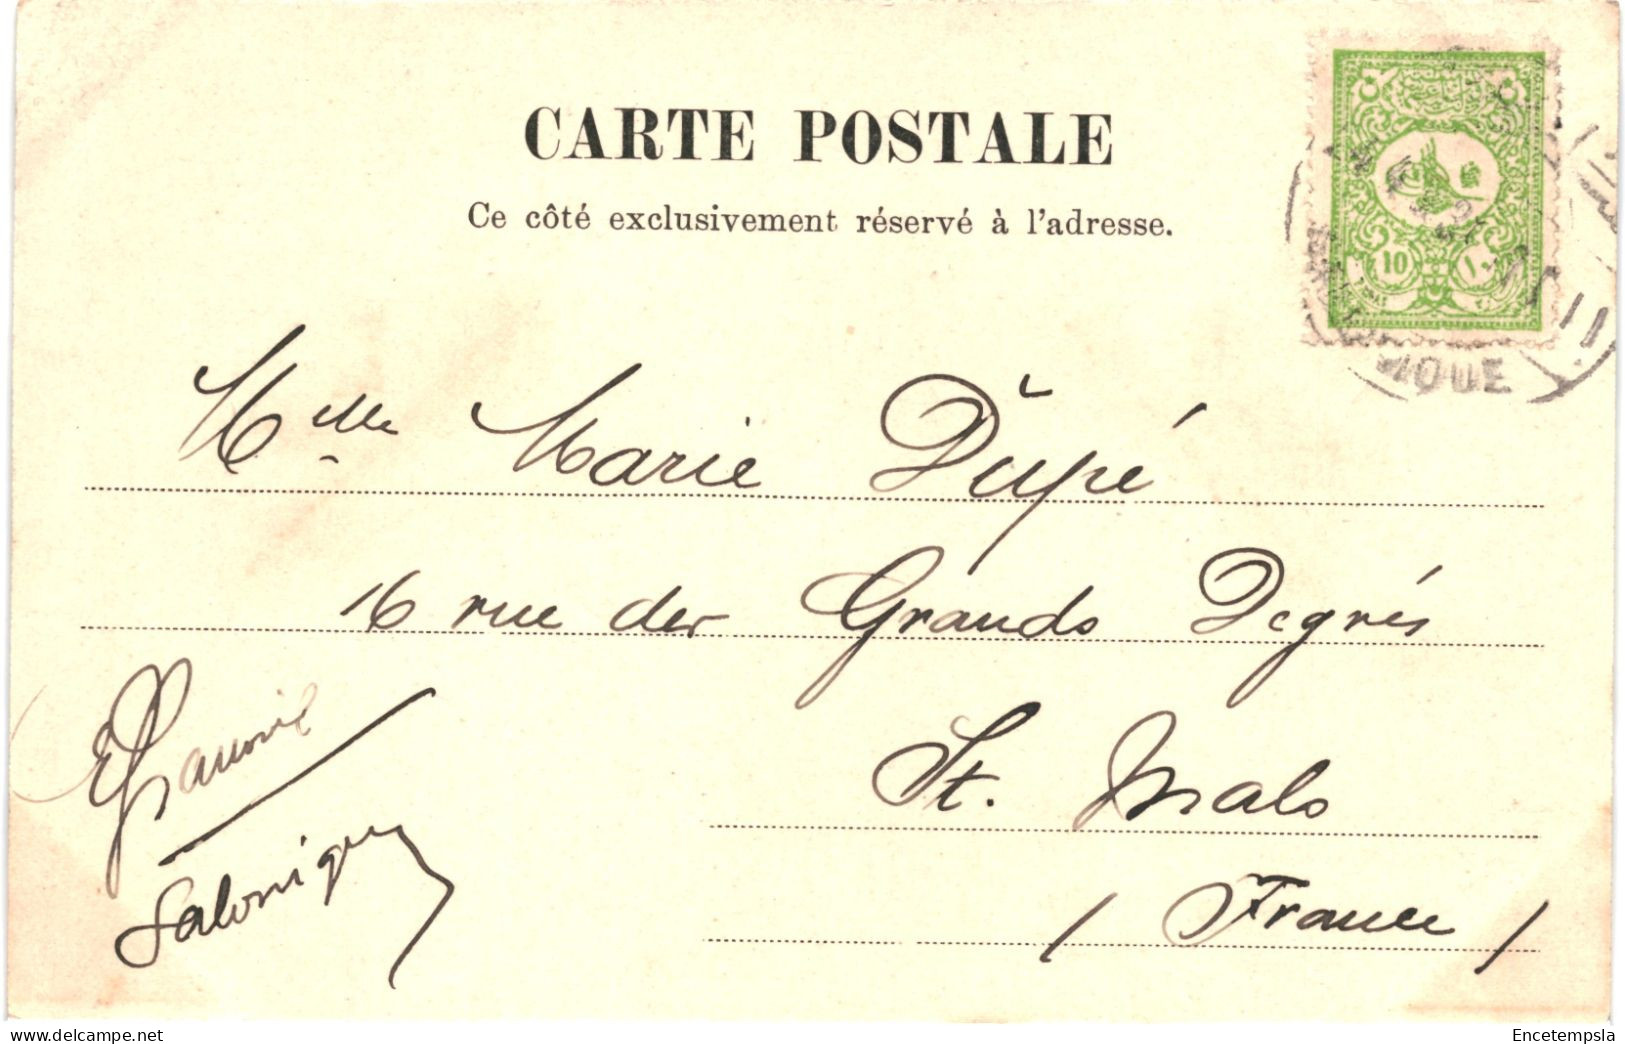 CARTE POSTALE
Ce côté exclusivement réservé à l'adresse.
10 ١٠
IQUE
Mlle Marie Dupé
16 rue des Grands Degrés
St. Malo
(France)
Salonique
delcampe.net
Encetempsla